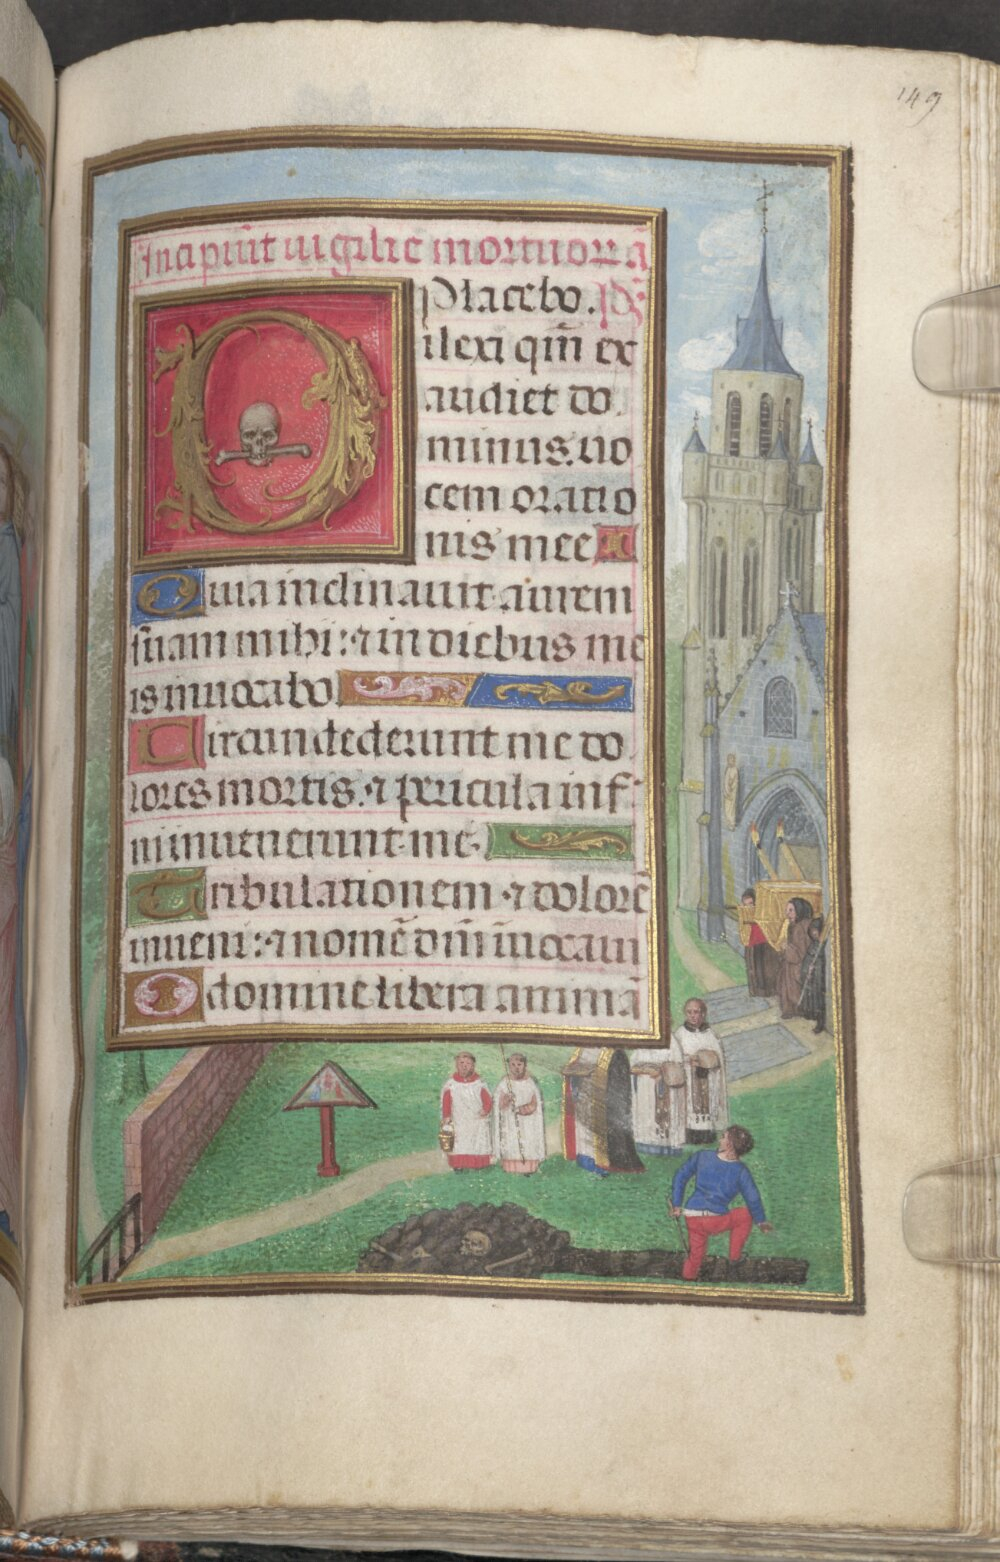 149
Incipiūt uigilie mortuorū
Placebo. ps̄
Dilexi qm̄ ex
audiet do
minus: uo
cem oratio
nis mee
Quia inclinauit aurem
suam mihi: ⁊ in diebus me
is inuocabo
Circundederunt me do
lores mortis: ⁊ pericula inf
ni inuenerunt me.
Tribulationem ⁊ dolorē
inueni: ⁊ nomē dn̄i inuocaui
O domine libera animā